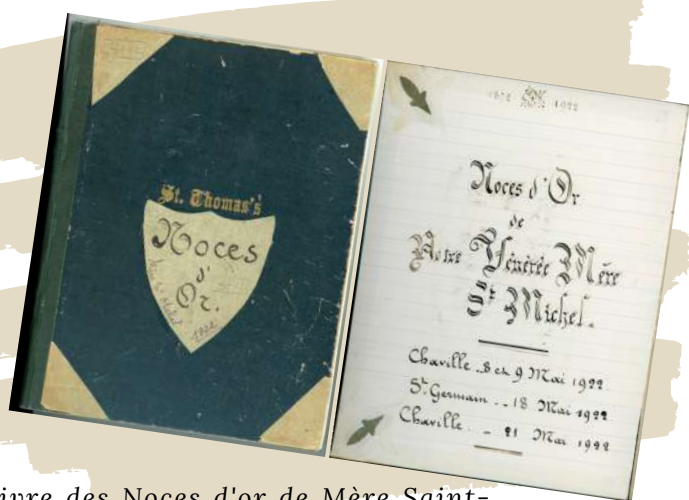 St. Thomas's
Noces
d'
Or.
1922
1872 1922
Noces d'Or
de
Notre Vénérée Mère
St Michel.
Chaville 8 et 9 Mai 1922
St Germain -- 18 Mai 1922
Chaville -- 21 Mai 1922
ivre des Noces d'or de Mère Saint-